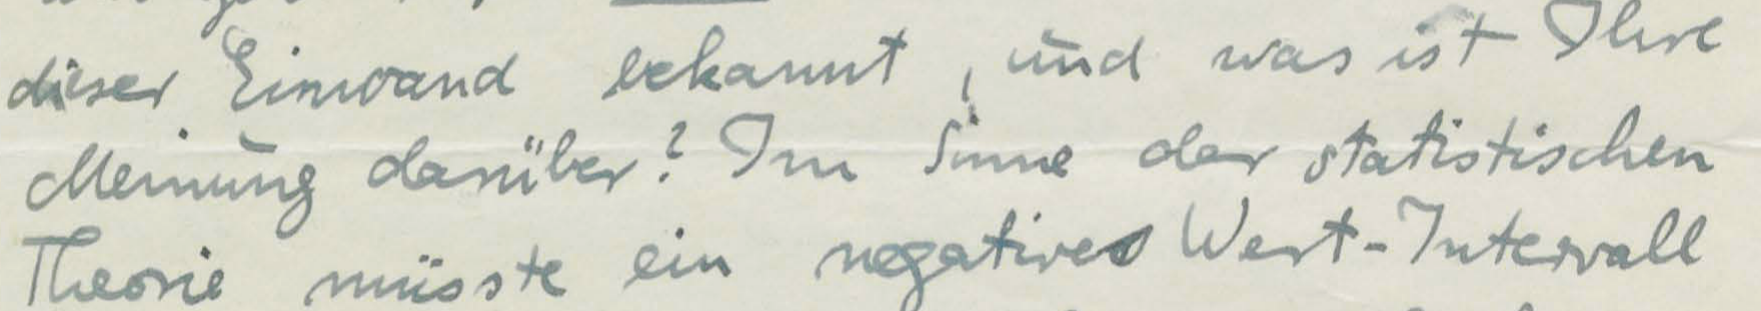 dieser Einwand bekannt, und was ist Ihre
Meinung darüber? Im Sinne der statistischen
Theorie müsste ein negatives Wert-Intervall